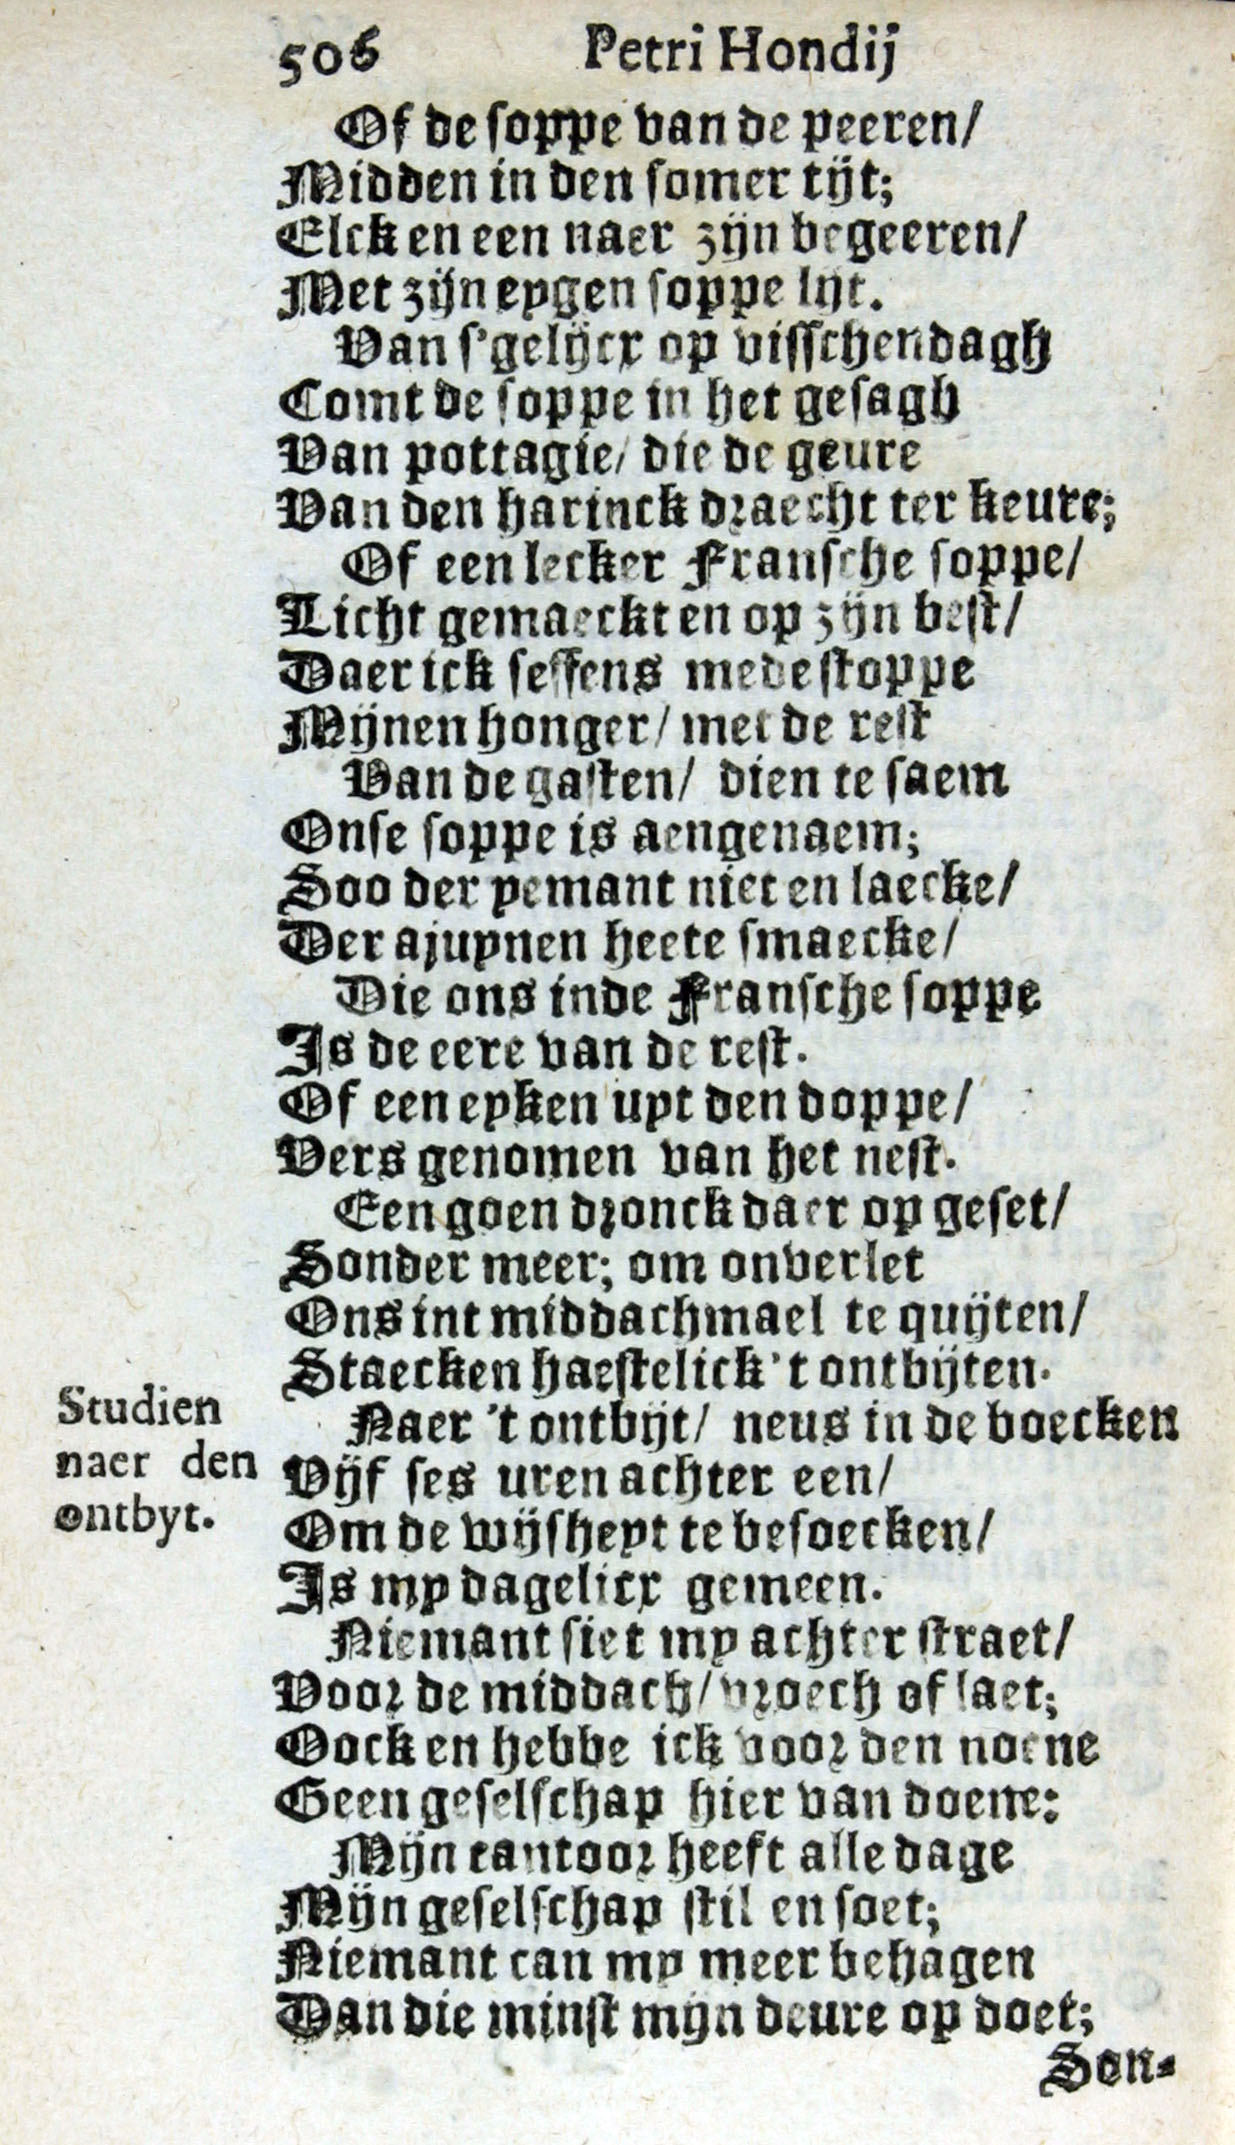 506 Petri Hondij
Of de soppe van de peeren/
Midden in den somer tijt;
Elck en een naer zijn begeeren/
Met zijn eygen soppe lijt.
Van s'gelijcx op visschendagh
Comt de soppe in het gesagh
Van pottagie/ die de geure
Van den harinck draecht ter keure;
Of een lecker Fransche soppe/
Licht gemaeckt en op zijn best/
Daer ick seffens mede stoppe
Mijnen honger/ met de rest
Van de gasten/ dien te saem
Onse soppe is aengenaem;
Soo der yemant niet en laecke/
Der ajuynen heete smaecke/
Die ons inde Fransche soppe
Is de eere van de rest.
Of een eyken uyt den doppe/
Vers genomen van het nest.
Een goen dronck daer op geset/
Sonder meer; om onverlet
Ons int middachmael te quijten/
Staecken haestelick 't ontbijten.
Studien naer den ontbyt.
Naer 't ontbijt/ neus in de boecken
Vijf ses uren achter een/
Om de wijsheyt te besoecken/
Is my dagelicx gemeen.
Niemant siet my achter straet/
Voor de middach/ vroech of laet;
Oock en hebbe ick voor den noene
Geen geselschap hier van doene:
Mijn cantoor heeft alle dage
Mijn geselschap stil en soet;
Niemant can my meer behagen
Dan die minst mijn deure op doet;
Son-